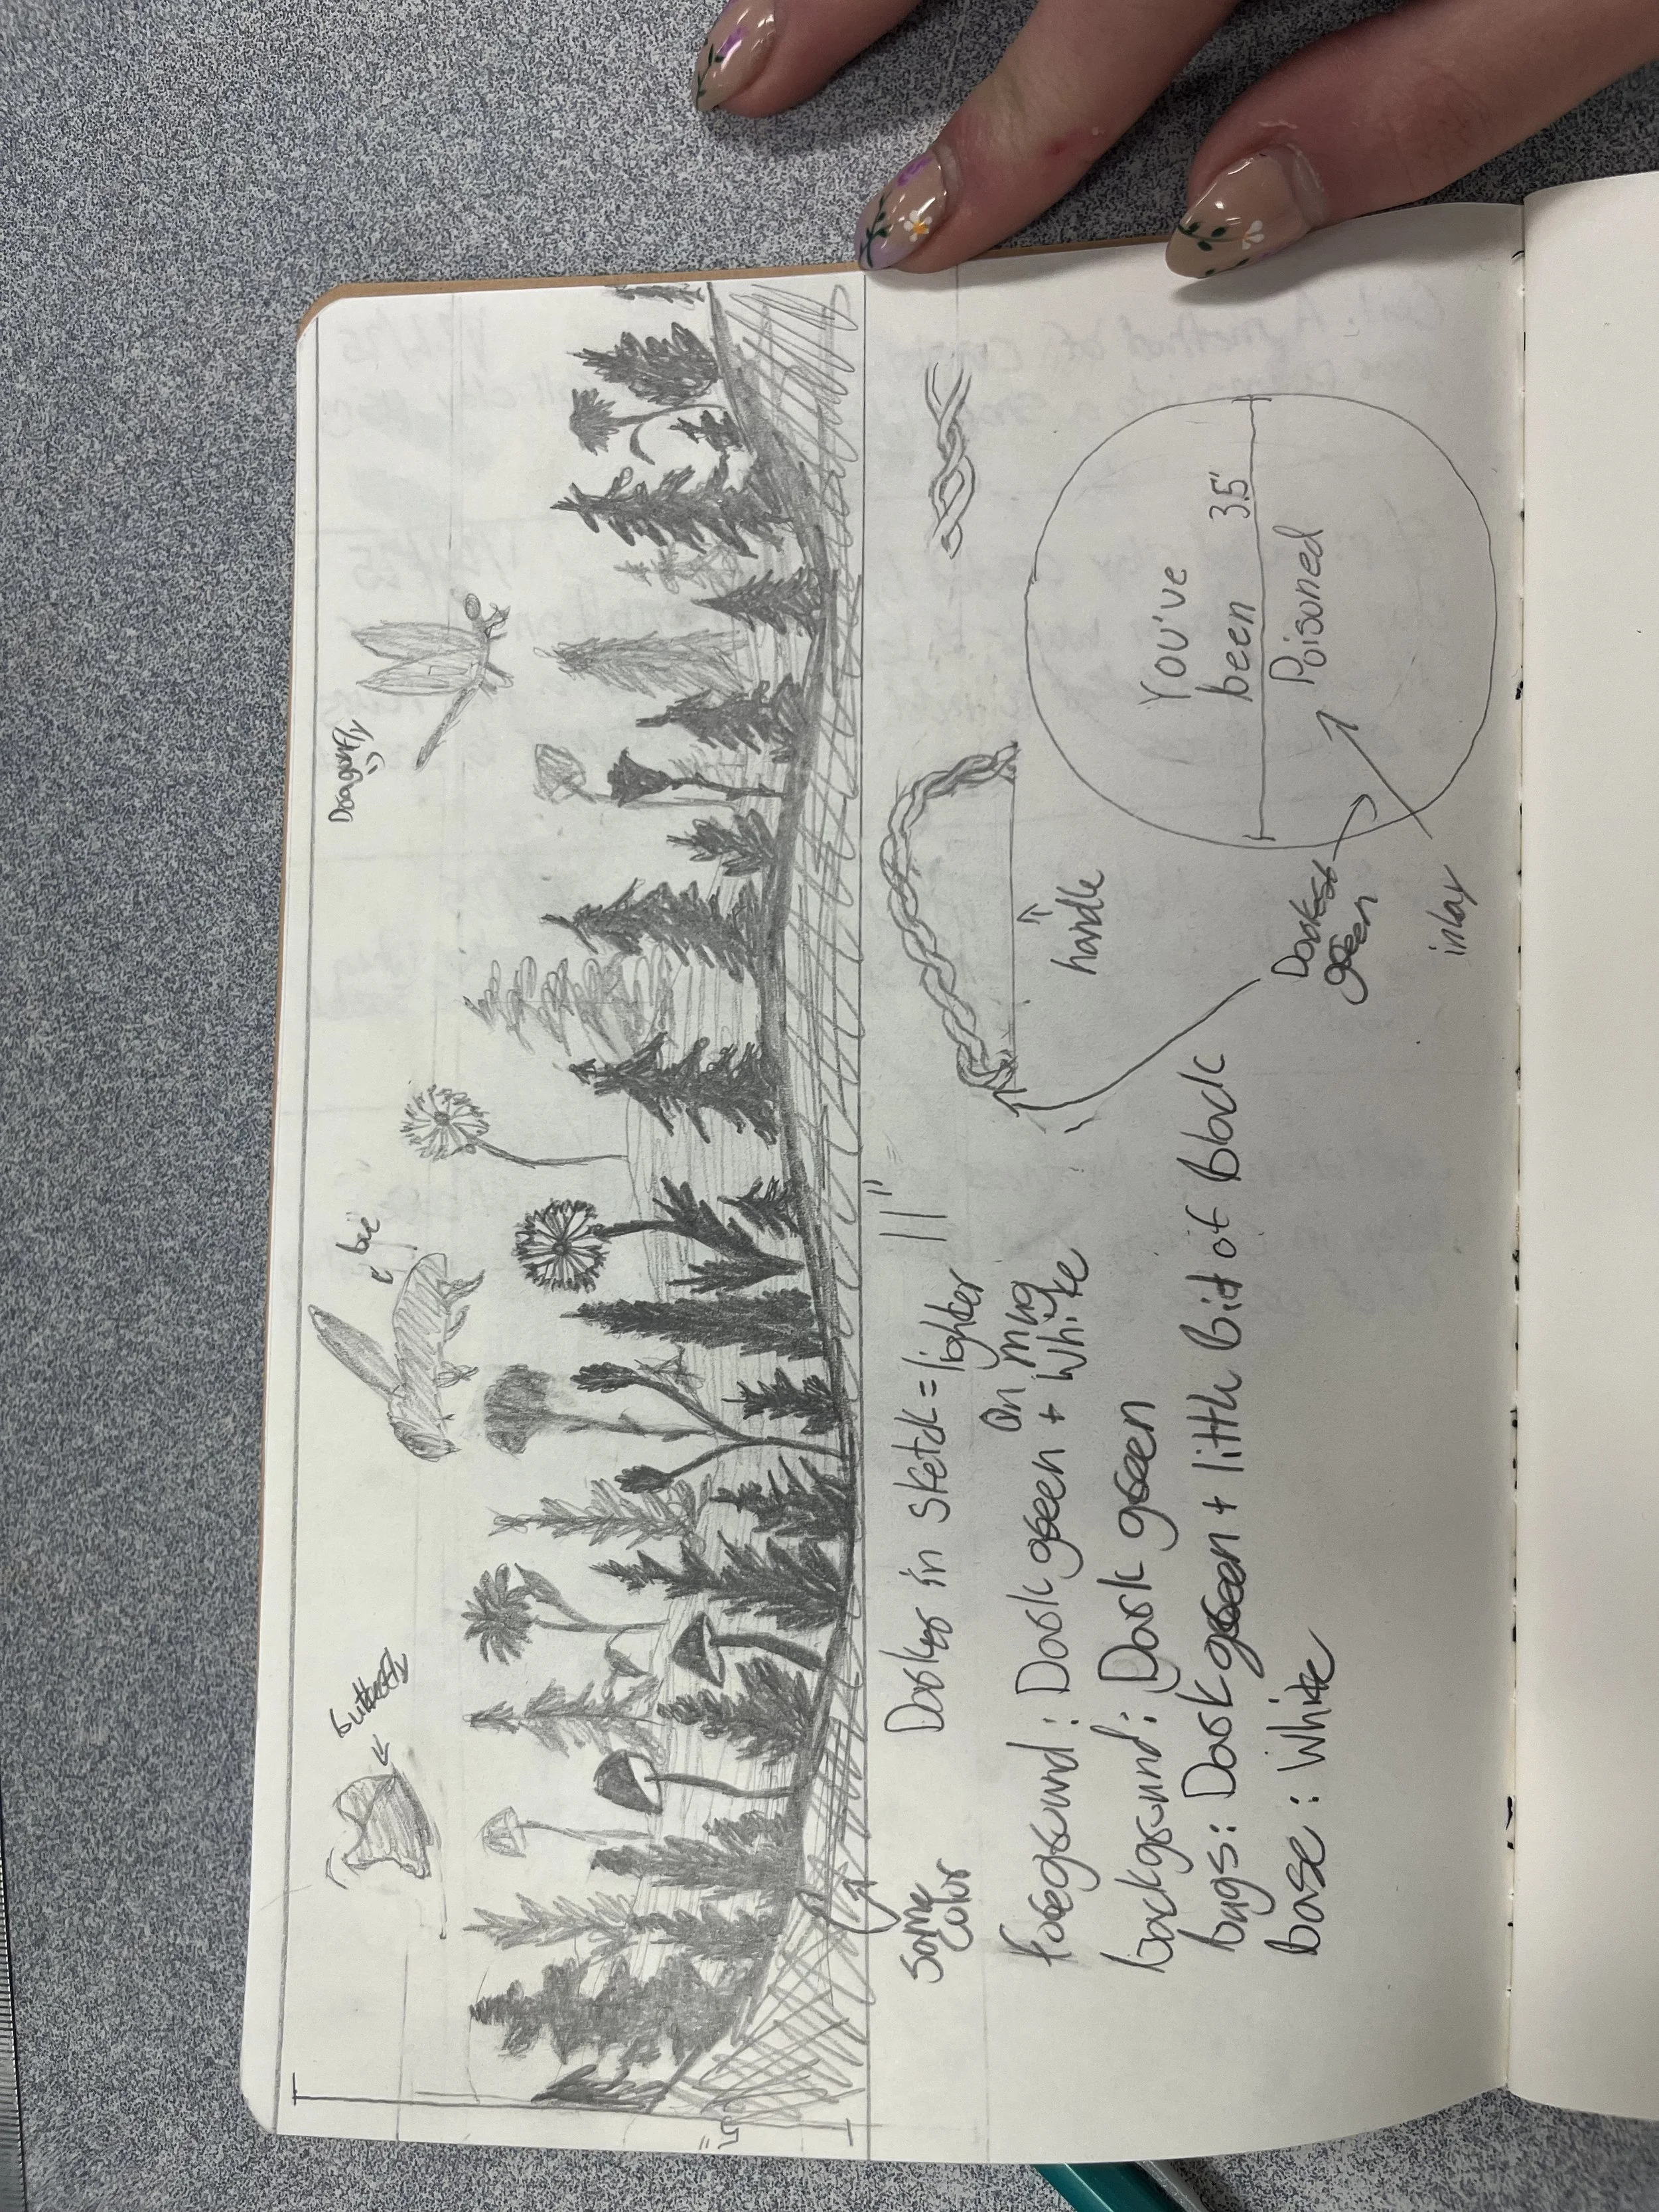 butterfly
bee
Dragonfly
:)
5"
Some
color
Darker in sketch = lighter
on mug
11"
foreground: Dark green + White
background: Dark green
bugs: Dark green + little bit of black
base: White
handle
Darkest
green
inlay
You've
been
3.5"
Poisoned